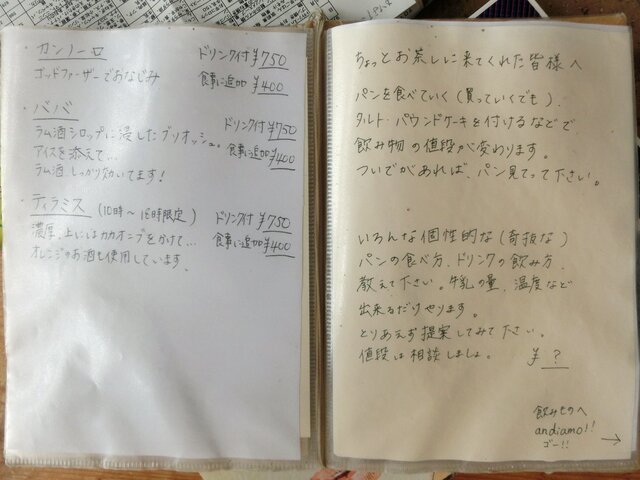 ・カンノーロ ドリンク付 ¥750
ゴッドファーザーでおなじみ 食事に追加 ¥400
・ババ
ラム酒シロップに浸したブリオッシュ。 ドリンク付 ¥750
アイスを添えて… 食事に追加 ¥400
ラム酒しっかり効いてます!
・ティラミス (10時〜18時限定) ドリンク付 ¥750
濃厚、上にはカカオニブをかけて… 食事に追加 ¥400
オレンジのお酒も使用しています。
ちょっとお茶しに来てくれた皆様へ
パンを食べていく(買っていくでも)、
タルト・パウンドケーキを付けるなどで
飲み物の値段が変わります。
ついでがあれば、パン見てって下さい。
いろんな個性的な(奇抜な)
パンの食べ方、ドリンクの飲み方、
教えて下さい。牛乳の量、温度など
出来るだけやります。
とりあえず提案してみて下さい。
値段は相談しましょ。 ¥ ?
飲みものへ
andiamo!!
ゴー!! →